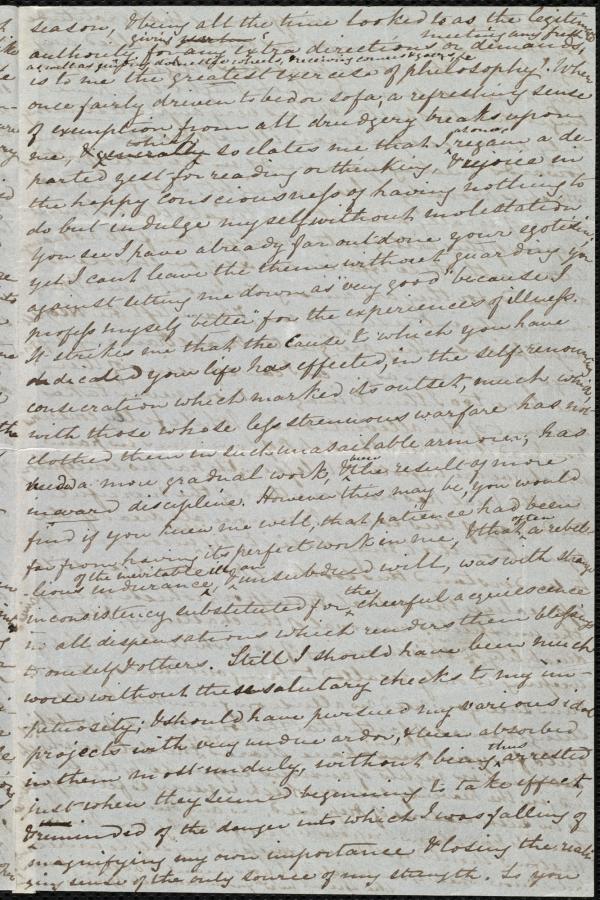 season, & being all the time looked to as the legitimate
giving meeting any fresh
authority for any extra directions or demands,
as well as quieting domestic wheels, & receiving
is to me the greatest exercise of philosophy! When
once fairly driven to bed or sofa, a refreshing sense
of exemption from all drudgery breaks upon
me, & generally so elates me that I at once regain a de-
parted zest for reading or thinking, & rejoice in
the happy consciousness of having nothing to
do but indulge myself without molestation
You see I have already far outdone your egotism,
yet I can't leave the theme without guarding you
against setting me down as "very good" because I
profess myself "better" for the experiences of illness.
It strikes me that the cause to which you have
dedicated your life has effected, in the self-renouncing
consecration which marked its outset, much which,
with those whose less strenuous warfare has not
clothed them in such unassailable armour, has
needed a more gradual work, & been the result of more
inward discipline. However this may be, you would
find if you knew me well, that patience had been
far from having its perfect work in me, & that often a rebel-
of the inevitable ills
lious endurance, & an unsubdued will, was with strange
inconsistency substituted for the cheerful acquiescence
in all dispensations which renders them blessings
to oneself & others. Still I should have been much
worse without these salutary checks to my im-
petuosity; & should have pursued my various idol
projects with very undue ardor, & been absorbed
in them most unduly, without being thus arrested
just when they seemed beginning to take effect,
& reminded of the danger into which I was falling of
magnifying my own importance & losing the reali-
zing sense of the only source of my strength. So you